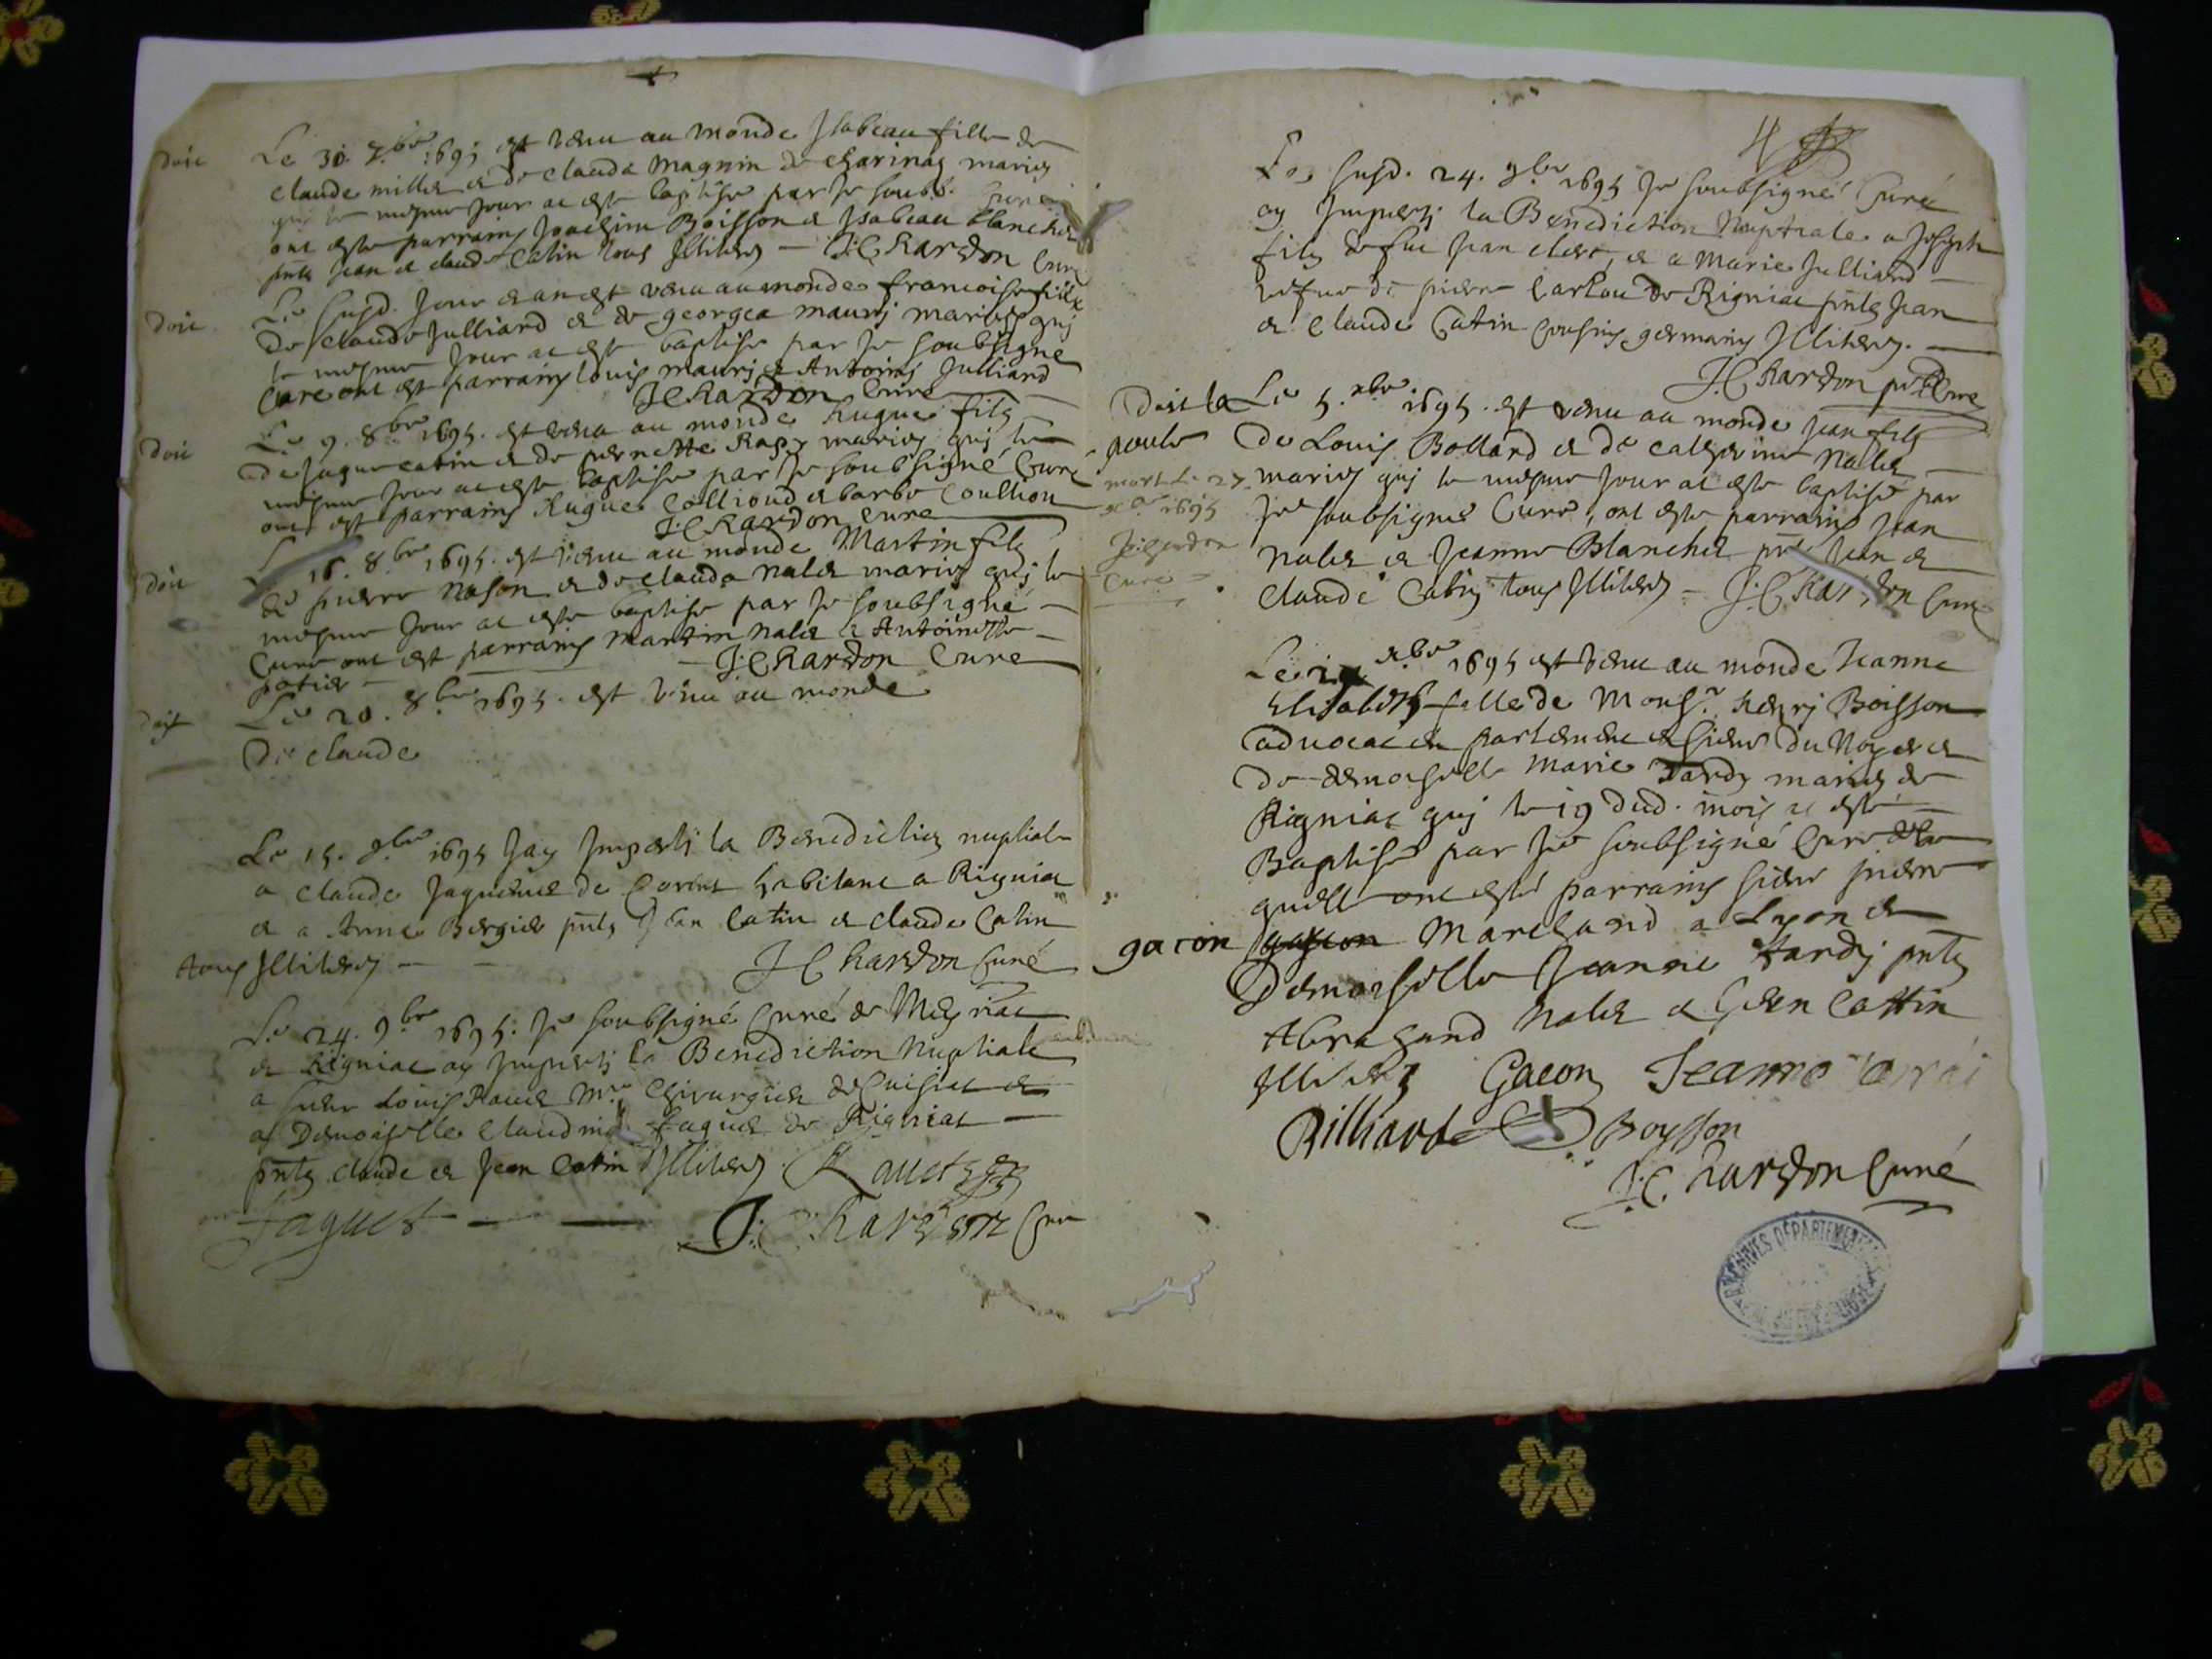 doit Le 30. 7.bre 1695 est venu au monde Isabeau fille de
claude millet et de clauda magnin de charinas maries
qui le mesme Jour at este baptise par Je soubs. Curé
ont este parrains Joachim Boisson et Isabeau blanchet
pnts Jean et claude Catin tous Illiteres — J:C hardon Curé
doit Le susd. Jour et an est venu au monde francoise fille
de claude Julliard et de georgea maurj maries quj
le mesme Jour at este baptise par Je soubsigné
Cure ont est parrains louis maurj et Antoina Julliard
J:C hardon Cure
doit Le 9. 8.bre 1695. est venu au monde hugue fils
de Jaque catin et de pernette Rapy maries quj le
mesme Jour at este baptise par Je soubsigné Curé
ont est parrains hugue Colliond et barbe Coullion
J:C hardon Cure
doit Le 16. 8.bre 1695. est venu au monde Martin fils
de pierre nason et de clauda nalet maries quj le
mesme Jour at este baptise par Je soubsigné
Cure ont est parrains Martin nalet et Antoinette
patier — J:C hardon Cure
doit Le 20. 8.bre 1695. est venu au monde
De claude
Le 15. 9.bre 1695 Jay Imperti la Benediction nuptiale
a claude Jaquemet de habitant a Rigniat
et a Anne Bergier pnts Jean Catin et claude Catin
tous Illiteres — J C hardon Curé
Le 24. 9.bre 1695. Je soubsigné Curé de Meyriat
et Rigniat ay Imperti la Benediction Nuptiale
a sieur Louis Ravet Mre Chirurgien de Cuisiat et
a Demoiselle claudine faguet de Rigniat —
pnts claude et Jean Catin Illiteres. Ravet
faguet — — J:C: hardon Cure
4
Le susd. 24. 9.bre 1695 Je soubsigné Curé
ay Imperti la Benediction Nuptiale a Joseph
fils de feu Jean clerc, et a Marie Julliard
vefve de pierre de Rigniat pnts Jean
et Claude Catin Cousins germains Illiteres. —
J:C hardon ptre Cure
Doit la poule Le 5. xbre 1695. est venu au monde Jean fils
De Louis Bollard et de Catherine Nalet
maries quj le mesme Jour at este baptisé par
Je soubsigné Curé, ont este parrains Jean
Nalet et Jeanne Blanchet pnts Jean et
Claude Catin tous Illiteres — J:C hardon Cure
mort le 27.
xbre 1695
J:C hardon
Curé
Le xbre 1695 est venu au monde Jeanne
Elisabeth fille de Monsr. henrj Boisson
advocat en parlement et sieur du Noyer et
de demoiselle Marie Tardy maries de
Rigniat quj le 19 dud. mois at esté
Baptisé par Je soubsigné Curé
quelle ont esté parrains sieur pierre
gacon Marchand a Lyon et
Demoiselle Jeanne tardj pnts
Abraham Nalet et Jean Cattin
Illiteres Gacon Jeanne tardi
Billiard Boysson
J:C. hardon Curé
ARCHIVES DÉPARTEMENTALES